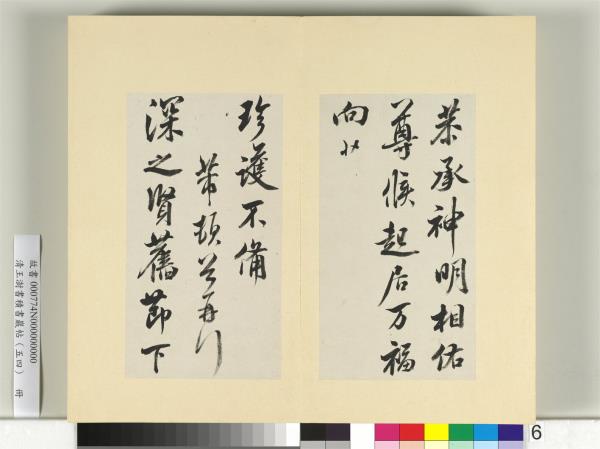 恭承神明相佑
尊候起居万福
向冷
珍護不備
芾頓首再拜
深之賢舊節下
故書 000774N000000000
清王澍書積書巖帖（五四） 冊
6